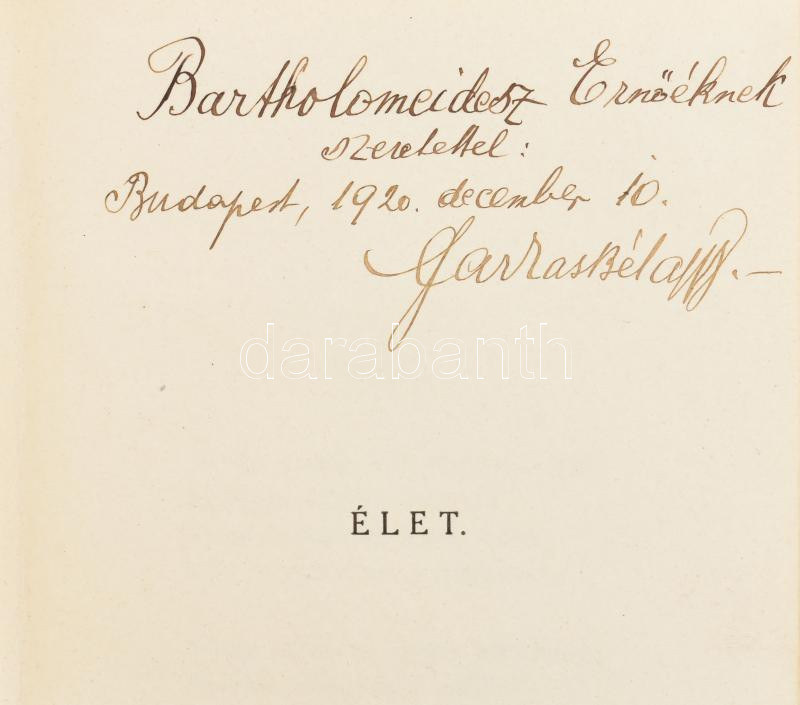 Bartholomeidesz Ernőéknek
szeretettel:
Budapest, 1920. december 10.
Jarras Béla
darabanth
ÉLET.